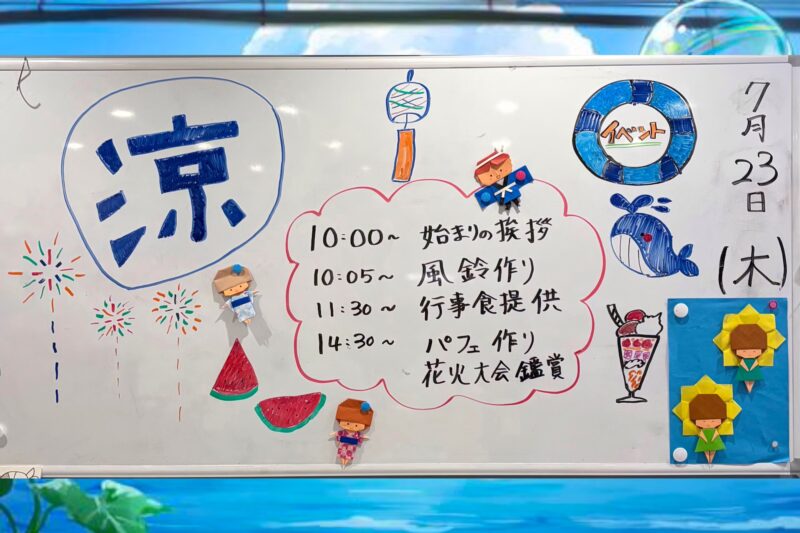 涼
イベント
7月23日
(木)
10:00~ 始まりの挨拶
10:05~ 風鈴作り
11:30~ 行事食提供
14:30~ パフェ作り
花火大会鑑賞